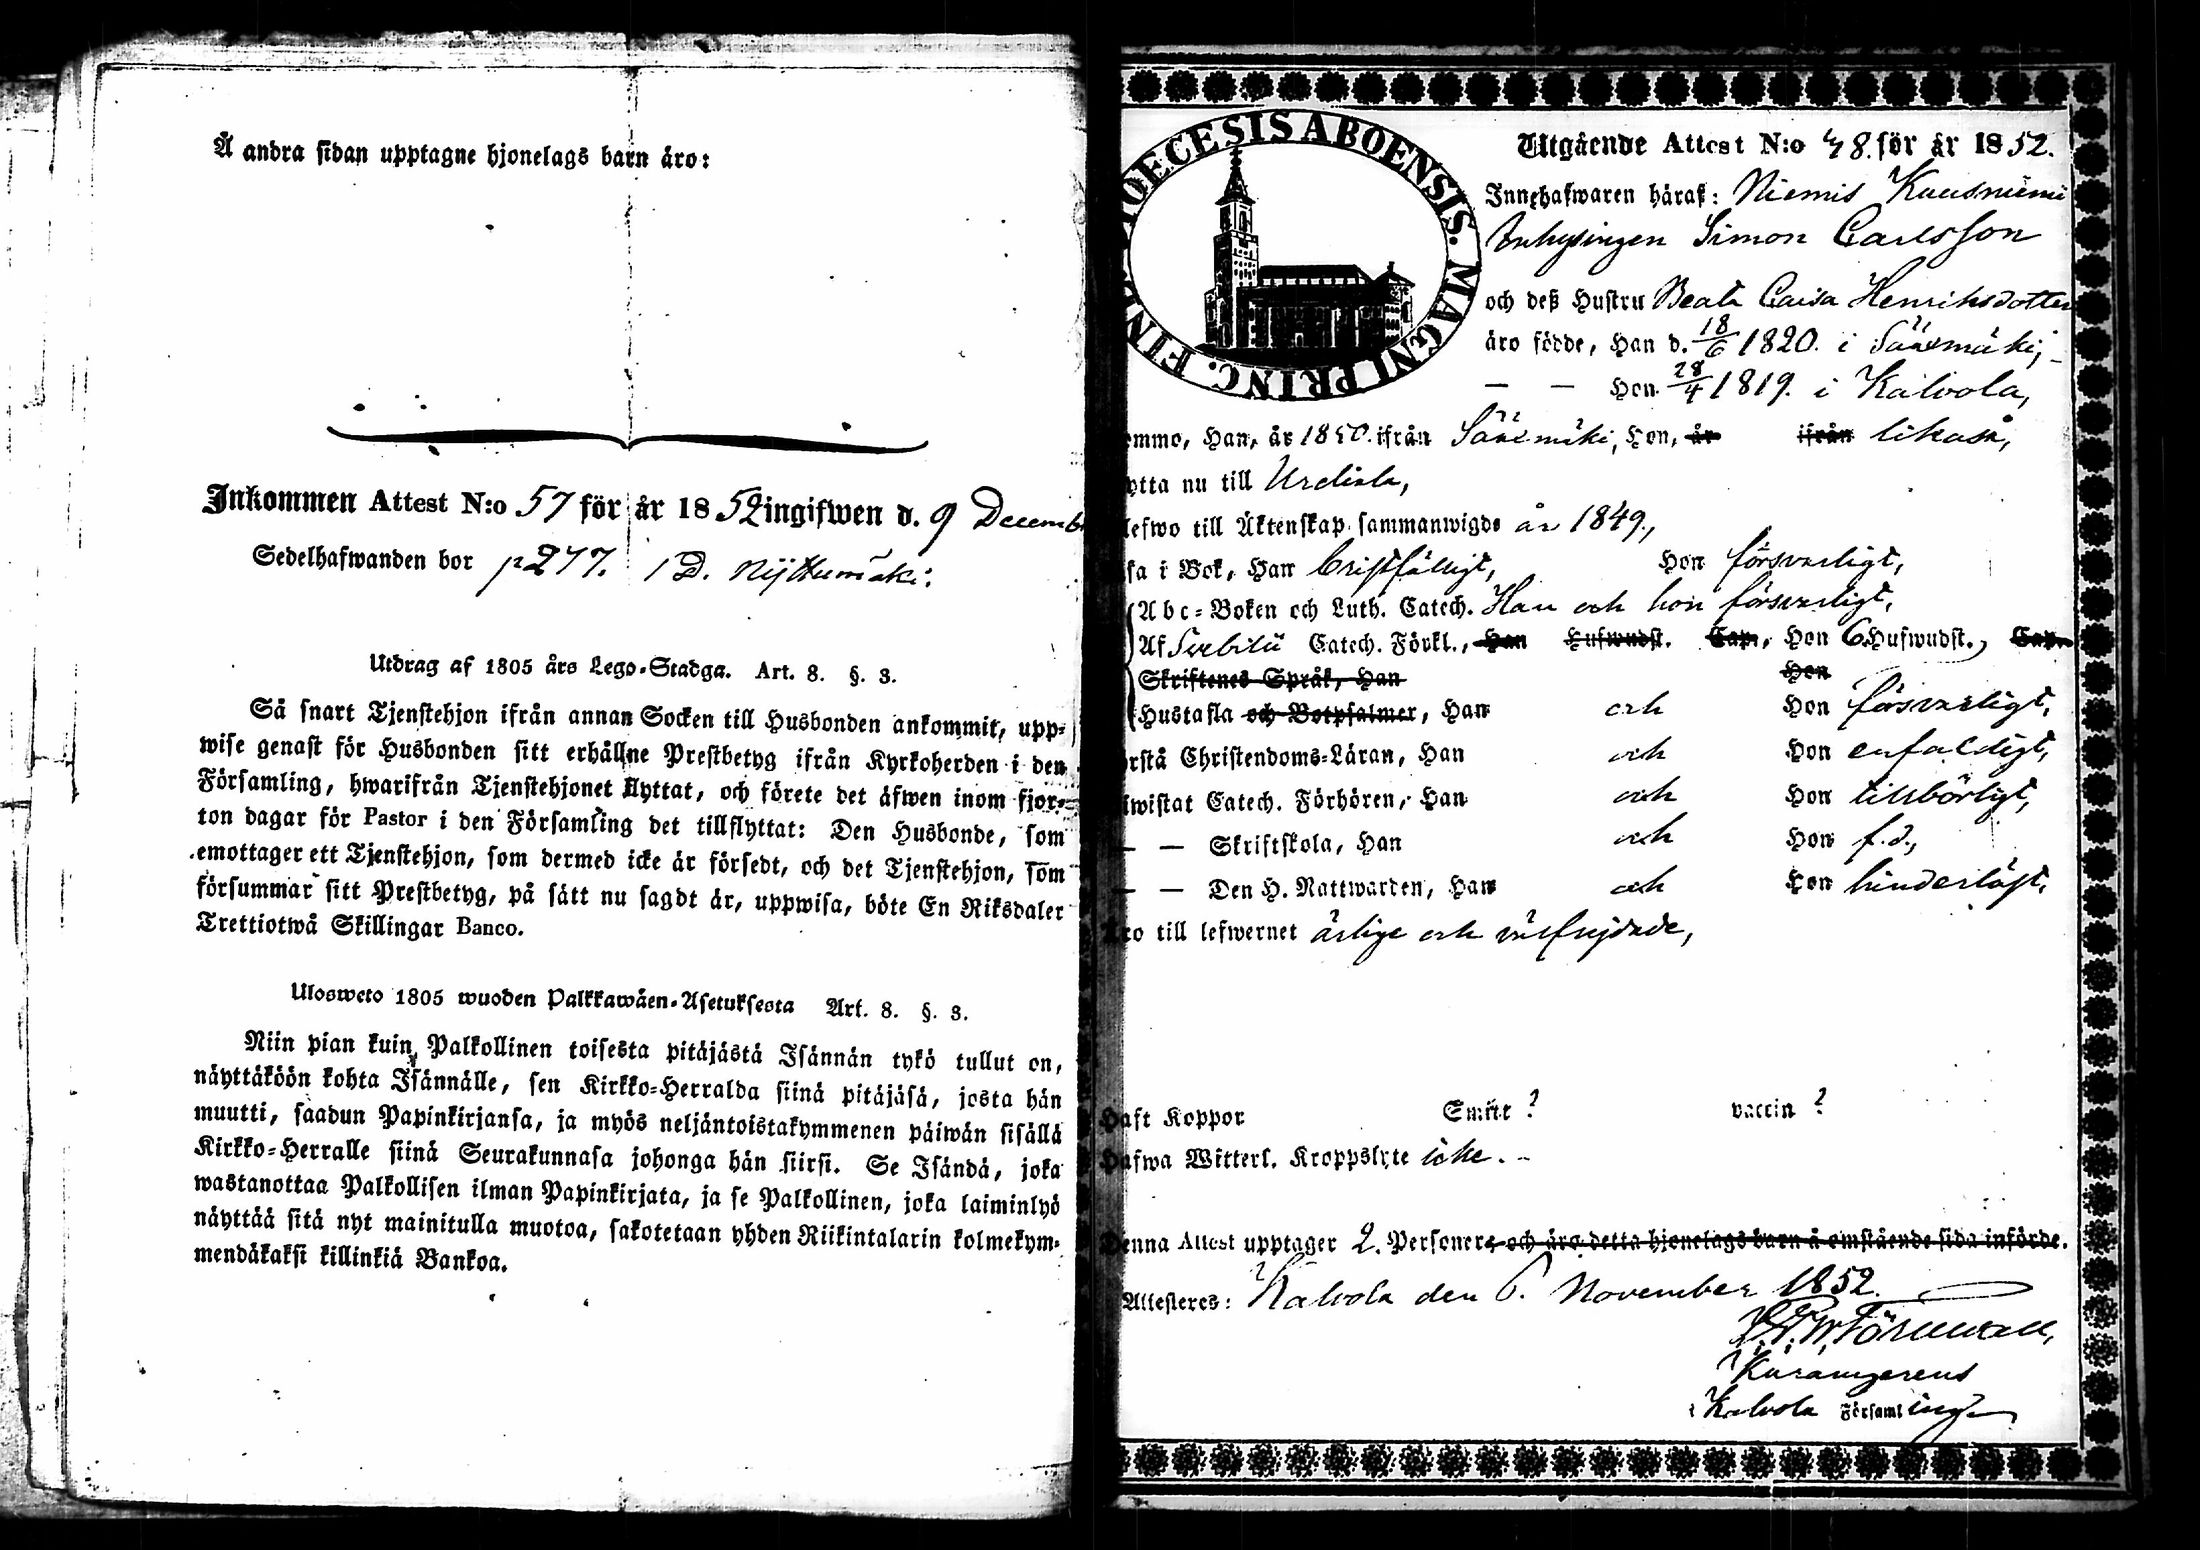 Å andra sidan upptagne hjonelags barn äro:
Inkommen Attest N:o 57 för år 1852 ingifwen d. 9 Decemb
Sedelhafwanden bor p 277. 1 D. Nijttumäki.
Utdrag af 1805 års Lego-Stadga. Art. 8. §. 3.
Så snart Tjenstehjon ifrån annan Socken till Husbonden ankommit, upp-
wise genast för Husbonden sitt erhållne Prestbetyg ifrån Kyrkoherden i den
Församling, hwarifrån Tjenstehjonet flyttat, och förete det äfwen inom fjor-
ton dagar för Pastor i den Församling det tillflyttat: Den Husbonde, som
emottager ett Tjenstehjon, som dermed icke är försedt, och det Tjenstehjon, som
försummar sitt Prestbetyg, på sätt nu sagdt är, uppwisa, böte En Riksdaler
Trettiotwå Skillingar Banco.
Ulosweto 1805 wuoden Palkkawäen-Asetuksesta Art. 8. §. 3.
Niin pian kuin Palkollinen toisesta pitäjästä Isännän tykö tullut on,
näyttäköön kohta Isännälle, sen Kirkko-Herralda siinä pitäjäsä, josta hän
muutti, saadun Papinkirjansa, ja myös neljäntoistakymmenen päiwän sisällä
Kirkko-Herralle siinä Seurakunnasa johonga hän siirsi. Se Isändä, joka
wastanottaa Palkollisen ilman Papinkirjata, ja se Palkollinen, joka laiminlyö
näyttää sitä nyt mainitulla muotoa, sakotetaan yhden Riikintalarin kolmekym-
mendäkaksi killinkiä Bankoa.
OECESIS ABOENSIS. MAGNI PRINC. FIN
Utgående Attest N:o 48. för år 1852.
Innehafwaren häraf: Niemis Kuusniemi
Inhysingen Simon Carlsson
och deß Hustru Beata Caisa Henriksdotter
äro födde, Han d. 18/6 1820. i Sääxmäki,
— — Hon 28/4 1819. i Kalvola,
ommo, Han, år 1850. ifrån Sääxmäki, Hon, år ifrån likaså,
ytta nu till Urdiala,
lefwo till Äktenskap sammanwigde år 1849,
sa i Bok, Han bristfälligt, Hon försvarligt,
Abc-Boken och Luth. Catech. Han och hon försvarligt,
Af Svebilii Catech. Förkl., Han Hufwudst. Cap., Hon 6 Hufwudst., Cap.
Skriftenes Språk, Han Hon
Hustafla och Botpsalmer, Han och Hon försvarligt,
rstå Christendoms-Läran, Han och Hon enfaldigt,
iwistat Catech. Förhören, Han och Hon tillbörligt,
— — Skriftskola, Han och Hon f.d.,
— — Den H. Nattwarden, Han och Hon hinderlöst,
ro till lefwernet ärlige och välfrejdade,
Haft Koppor Smitt? vaccin?
Hafwa Witterl. Kroppslyte icke.
Denna Attest upptager 2. Personer, och äro detta hjonelags barn å omstående sida införde.
Attesteres: Kalvola den 6. November 1852.
Kalvola Församling